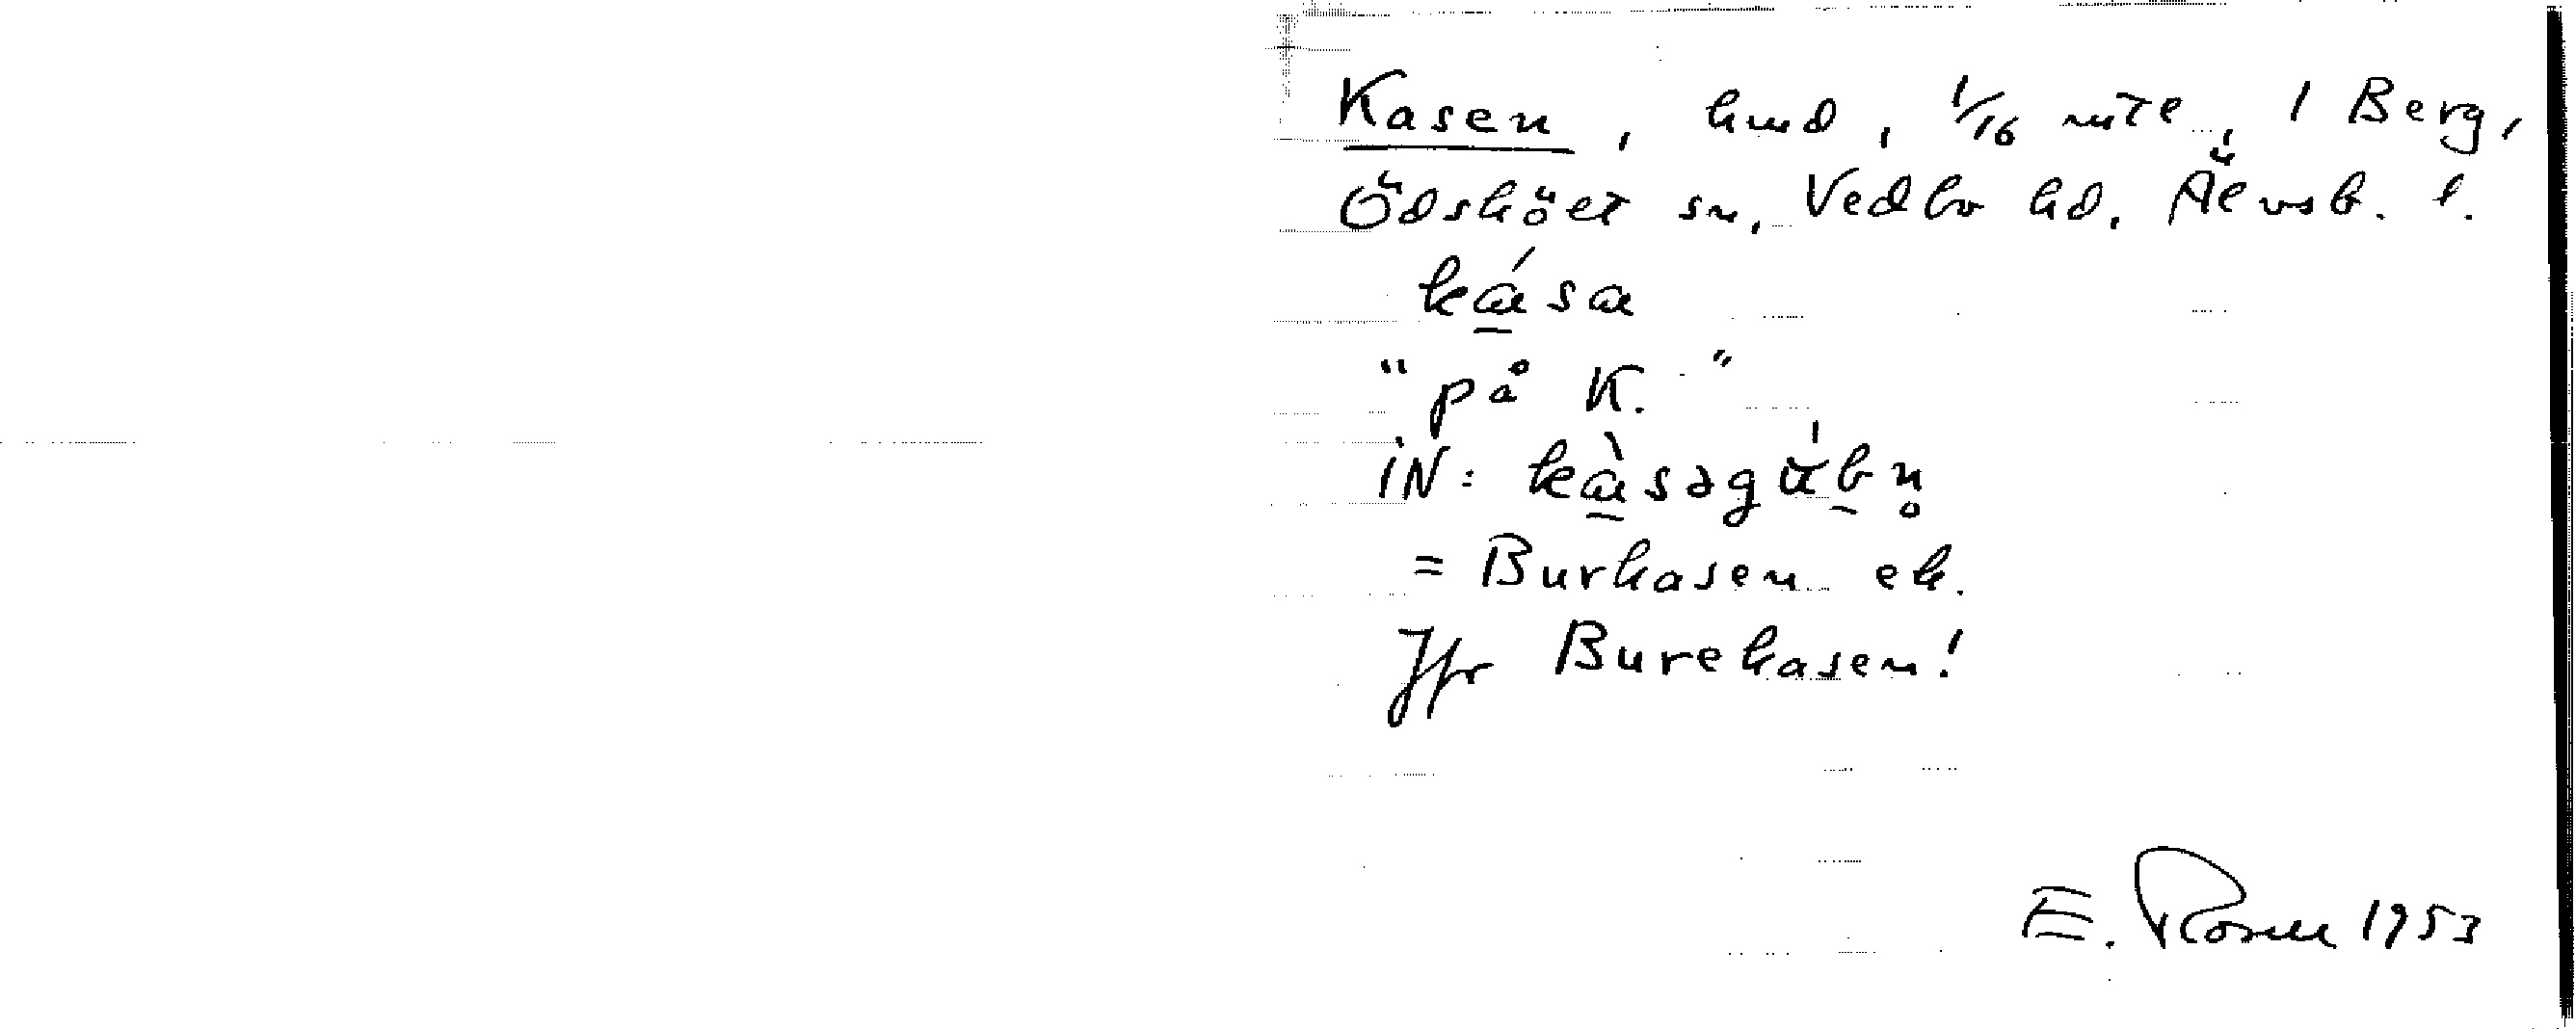 Kasen, hmd, 1/16 mtl, 1 Berg,
Ödsköլt sn, Vedbo hd. Älvsb. l.
ká̱sa
"på K."
iN: kà̱səgùḇn̥
= Burkasen ek.
Jfr Burekasen!
E. Rosell 1953